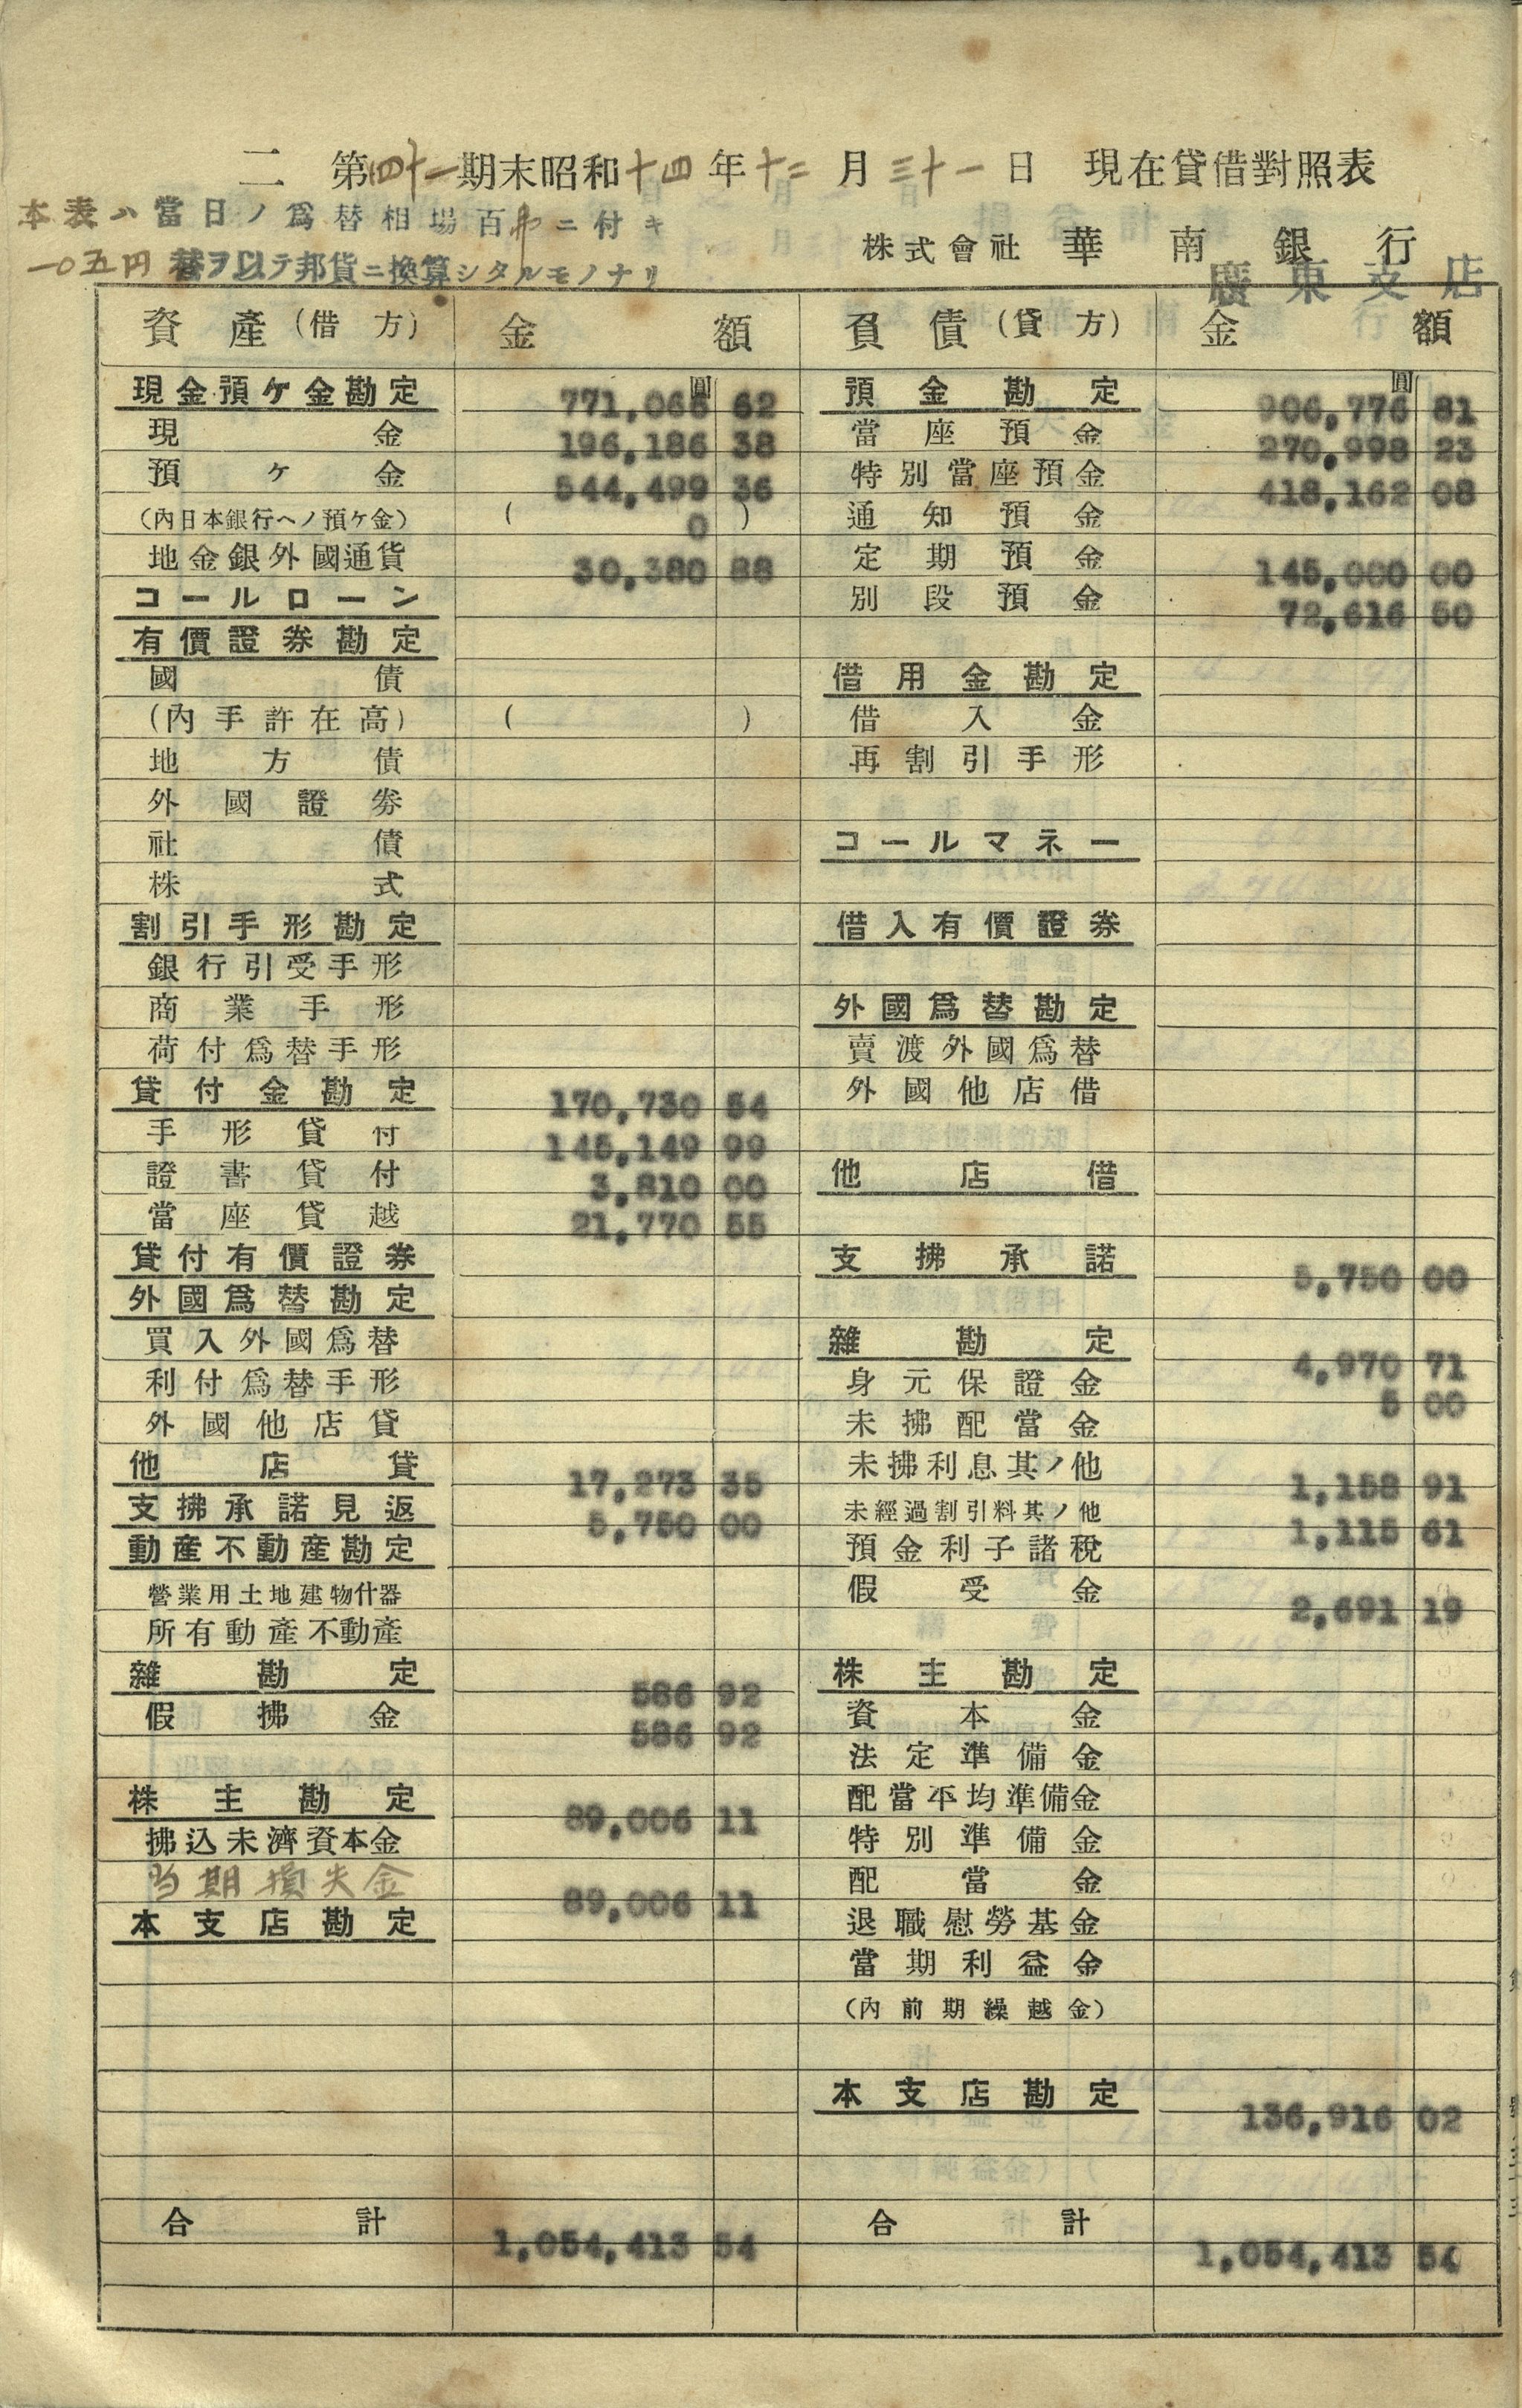 二 第四十一期末昭和十四年十二月三十一日 現在貸借對照表
本表ハ當日ノ爲替相場百弗ニ付キ
一〇五円替ヲ以テ邦貨ニ換算シタルモノナリ
株式會社 華南銀行
廣東支店
資產(借方) 金額 負債(貸方) 金額
圓 圓
現金預ケ金勘定 771,066 62
現金 196,186 38
預ケ金 544,499 36
(內日本銀行ヘノ預ケ金) ( 0 )
地金銀外國通貨 30,380 88
コールローン
有價證券勘定
國債
(內手許在高) ( )
地方債
外國證券
社債
株式
割引手形勘定
銀行引受手形
商業手形
荷付爲替手形
貸付金勘定 170,730 54
手形貸付 145,149 99
證書貸付 3,810 00
當座貸越 21,770 55
貸付有價證券
外國爲替勘定
買入外國爲替
利付爲替手形
外國他店貸
他店貸 17,273 35
支拂承諾見返 5,750 00
動產不動產勘定
營業用土地建物什器
所有動產不動產
雜勘定 586 92
假拂金 586 92
株主勘定 89,006 11
拂込未濟資本金
当期損失金 89,006 11
本支店勘定
合計 1,054,413 54
預金勘定 906,776 81
當座預金 270,998 23
特別當座預金 418,162 08
通知預金
定期預金 145,000 00
別段預金 72,616 50
借用金勘定
借入金
再割引手形
コールマネー
借入有價證券
外國爲替勘定
賣渡外國爲替
外國他店借
他店借
支拂承諾 5,750 00
雜勘定 4,970 71
身元保證金 5 00
未拂配當金
未拂利息其ノ他 1,158 91
未經過割引料其ノ他 1,115 61
預金利子諸稅
假受金 2,691 19
株主勘定
資本金
法定準備金
配當平均準備金
特別準備金
配當金
退職慰勞基金
當期利益金
(內前期繰越金)
本支店勘定 136,916 02
合計 1,054,413 54